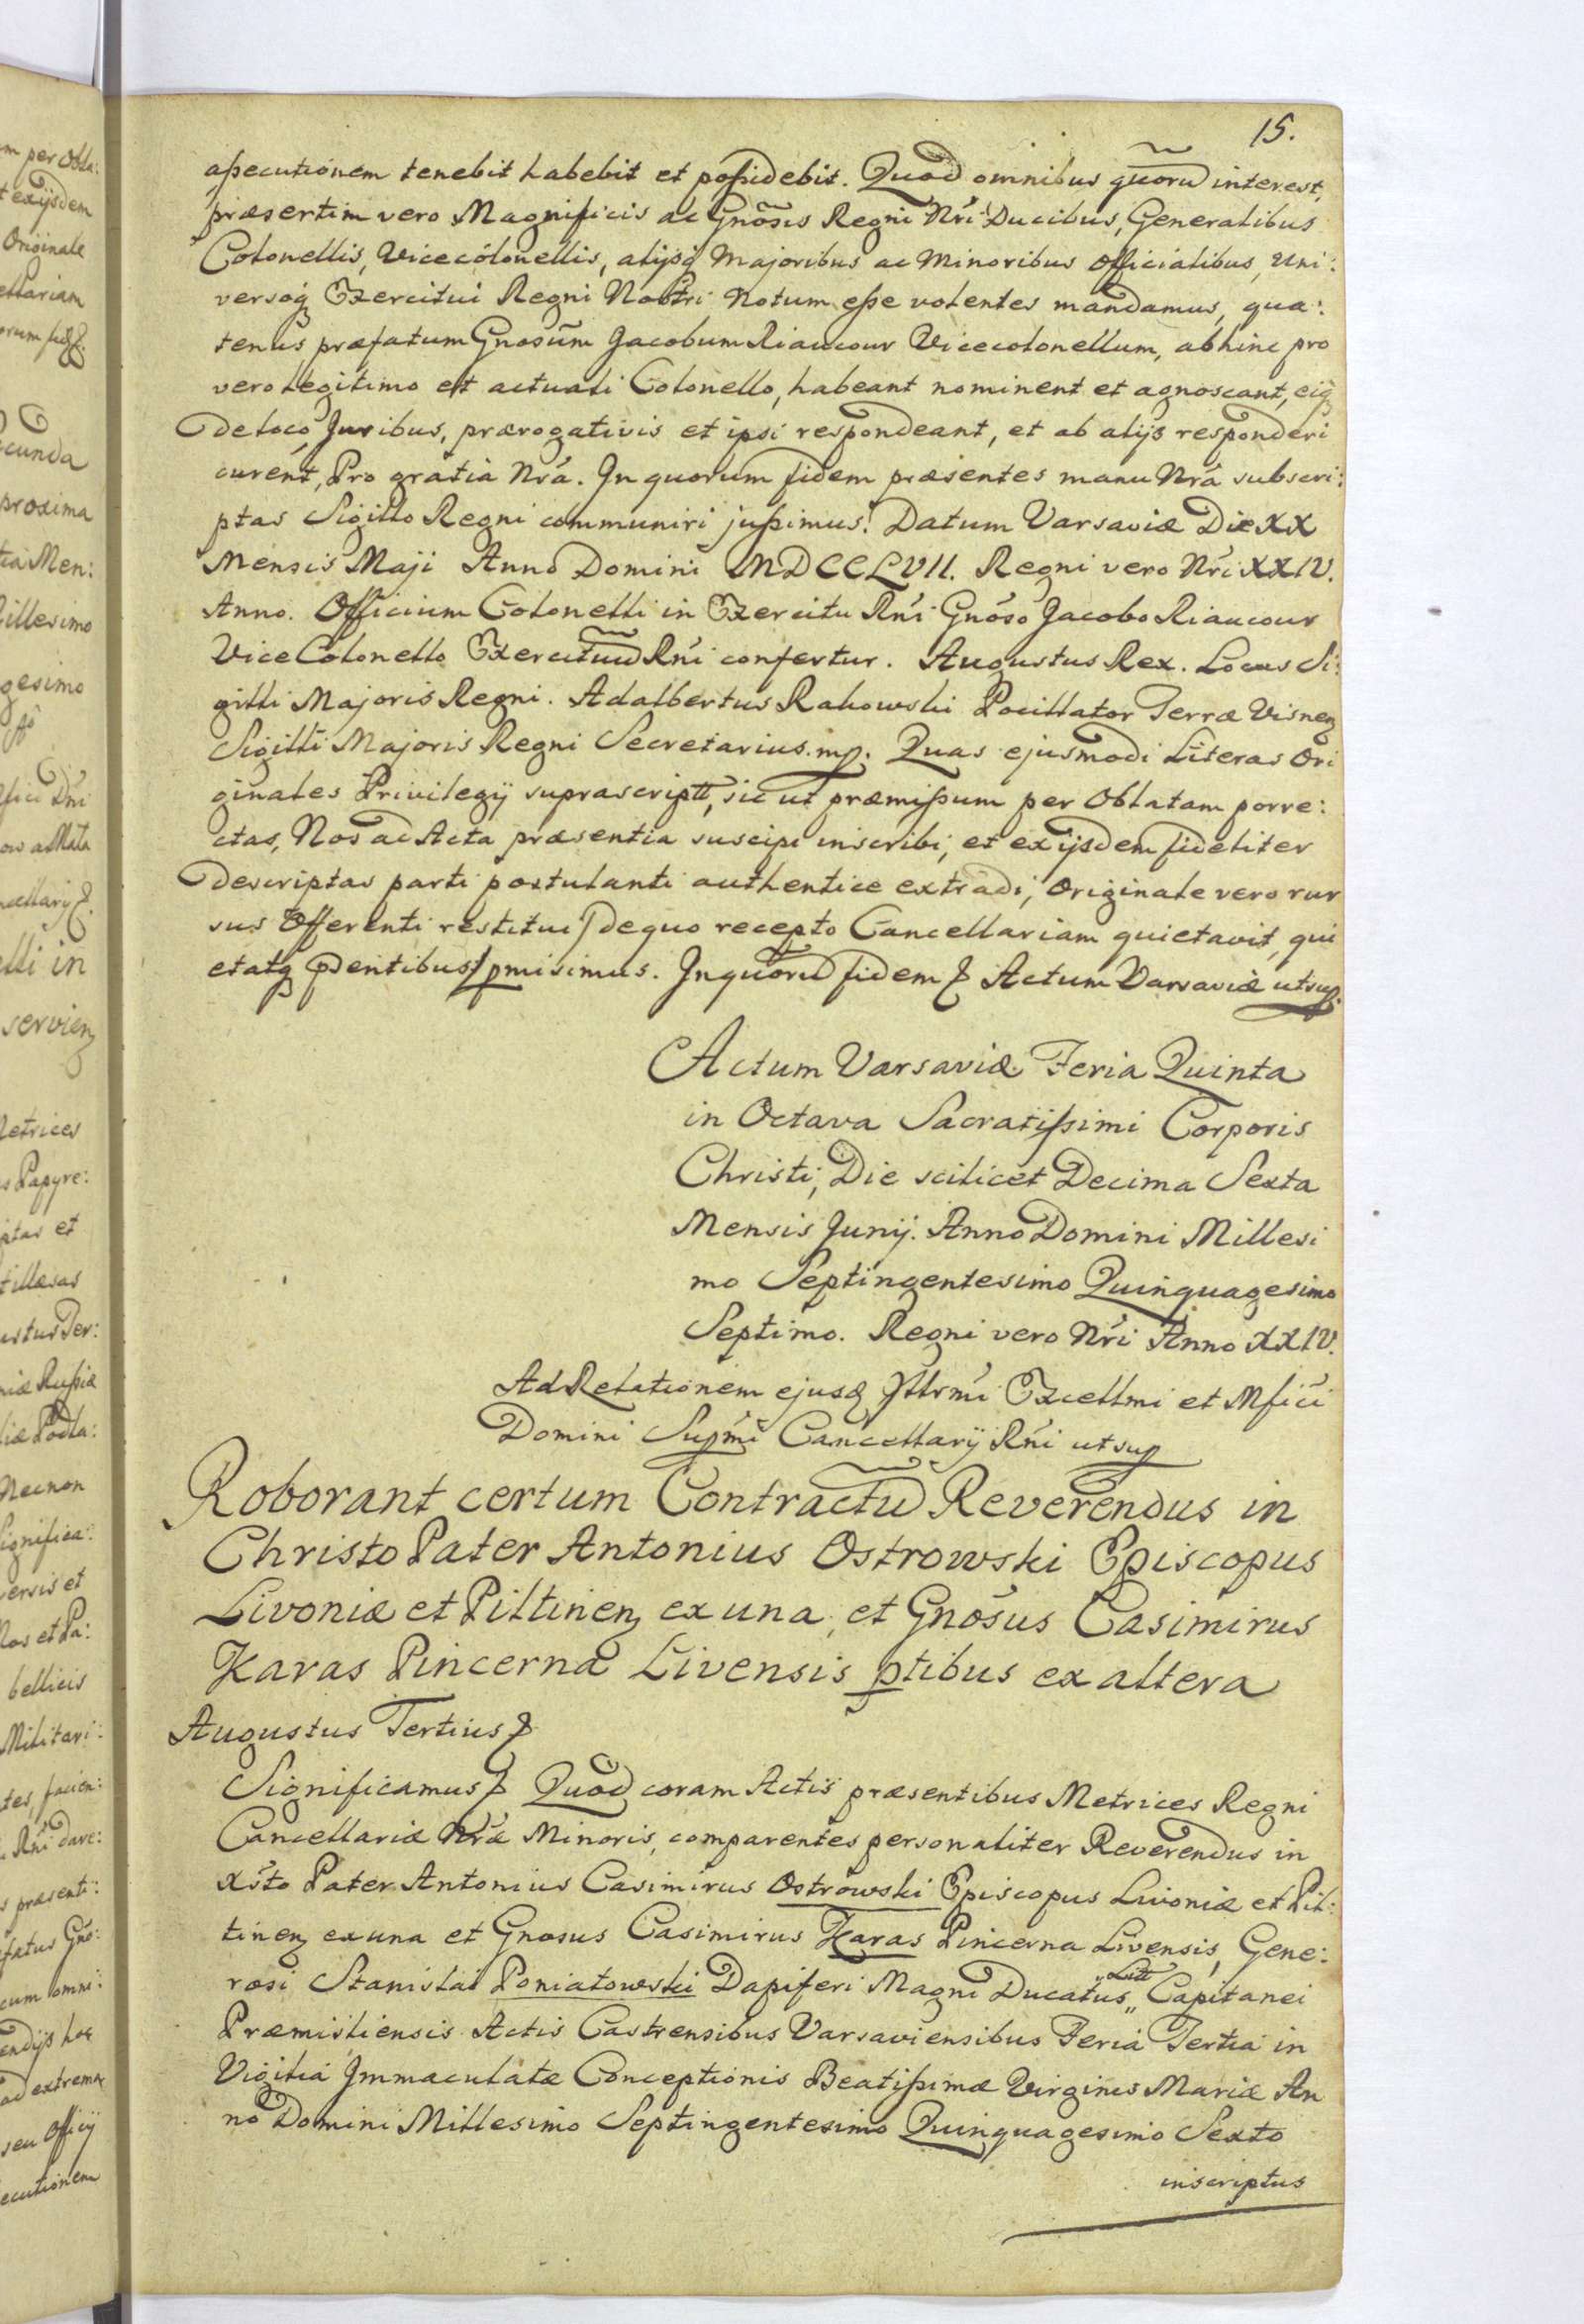 15.
aßecutionem tenebit habebit et poßidebit. Quod omnibus quoru interest,
præsertim vero Magnificis ac Gnõsis Regni Nri Ducibus, Generalibus
Colonellis, Vicecolonellis, alijsq Majoribus ac Minoribus Officialibus, Uni:
versoq Exercitui Regni Nostri Notum eße volentes mandamus, qua:
tenus præfatum Gnosum Jacobum Riaucour Vicecolonellum, abhinc pro
vero legitimo et actuali Colonello, habeant nominent et agnoscant, eiq
de loco Juribus, prærogativis et ipsi respondeant, et ab alijs responderi
curent, Pro gratia Nrá. In quorum fidem præsentes manu Nrá subscri:
ptas Sigillo Regni communiri jußimus. Datum Varsaviæ Die XX
Mensis Maji Anno Domini MDCCLVII. Regni vero Nri XXIV.
Anno. Officium Colonelli in Exercitu Rni Gnoso Jacobo Riaucour
Vice Colonello Exercituu Rni confertur. Augustus Rex. Locus Si:
gilli Majoris Regni. Adalbertus Rakowski Pocillator Terræ Visnen
Sigilli Majoris Regni Secretarius. mp. Quas ejusmodi Literas Ori
ginales Privilegij suprascripti, sic ut præmißum per Oblatam porre:
ctas, Nos ad Acta præsentia suscipi inscribi, et ex ijsdem fideliter
descriptas parti postulanti authentice extradi, Originale vero rur
sus Offerenti restitui / de quo recepto Cancellariam quietavit, qui
etatq pdentibus / pmisimus. In quoru fidem & Actum Varsaviæ ut sup.
Actum Varsaviæ Feria Quinta
in Octava Sacratißimi Corporis
Christi, Die scilicet Decima Sexta
Mensis Junij. Anno Domini Millesi
mo Septingentesimo Quinquagesimo
Septimo. Regni vero Nri Anno XXIV.
Ad Relationem ejusd Illrmi Excellmi et Mfici
Domini Supmi Cancellarij Rni ut sup
Roborant certum Contractu Reverendus in
Christo Pater Antonius Ostrowski Episcopus
Livoniæ et Piltinen ex una, et Gnosus Casimirus
Karas Pincerna Livensis ptibus ex altera
Augustus Tertius &
Significamus & Quod coram Actis præsentibus Metrices Regni
Cancellariæ Nræ Minoris, comparentes personaliter Reverendus in
Xsto Pater Antonius Casimirus Ostrowski Episcopus Livoniæ et Pil:
tinen ex una et Gnosus Casimirus Karas Pincerna Livensis, Gene:
rosi Stanislai Poniatowski Dapiferi Magni Ducatus "Litt" Capitanei
Præmisliensis Actis Castrensibus Varsaviensibus Feria Tertia in
Vigilia Immaculatæ Conceptionis Beatißimæ Virginis Mariæ An
no Domini Millesimo Septingentesimo Quinquagesimo Sexto
inscriptus